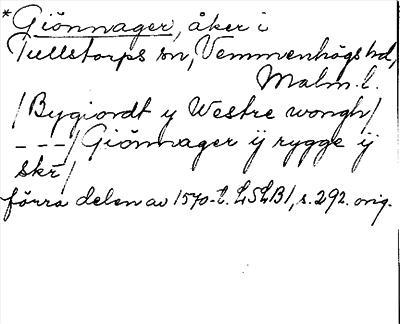 *Giönnager, åker i
Tullstorps sn, Vemmenhögs hd,
Malm. l.
/Bygiordt y Westre wongh/
---/Giönnager ij rygge ij
skr/
förra delen av 1570-t. LSLB1, s. 292. orig.